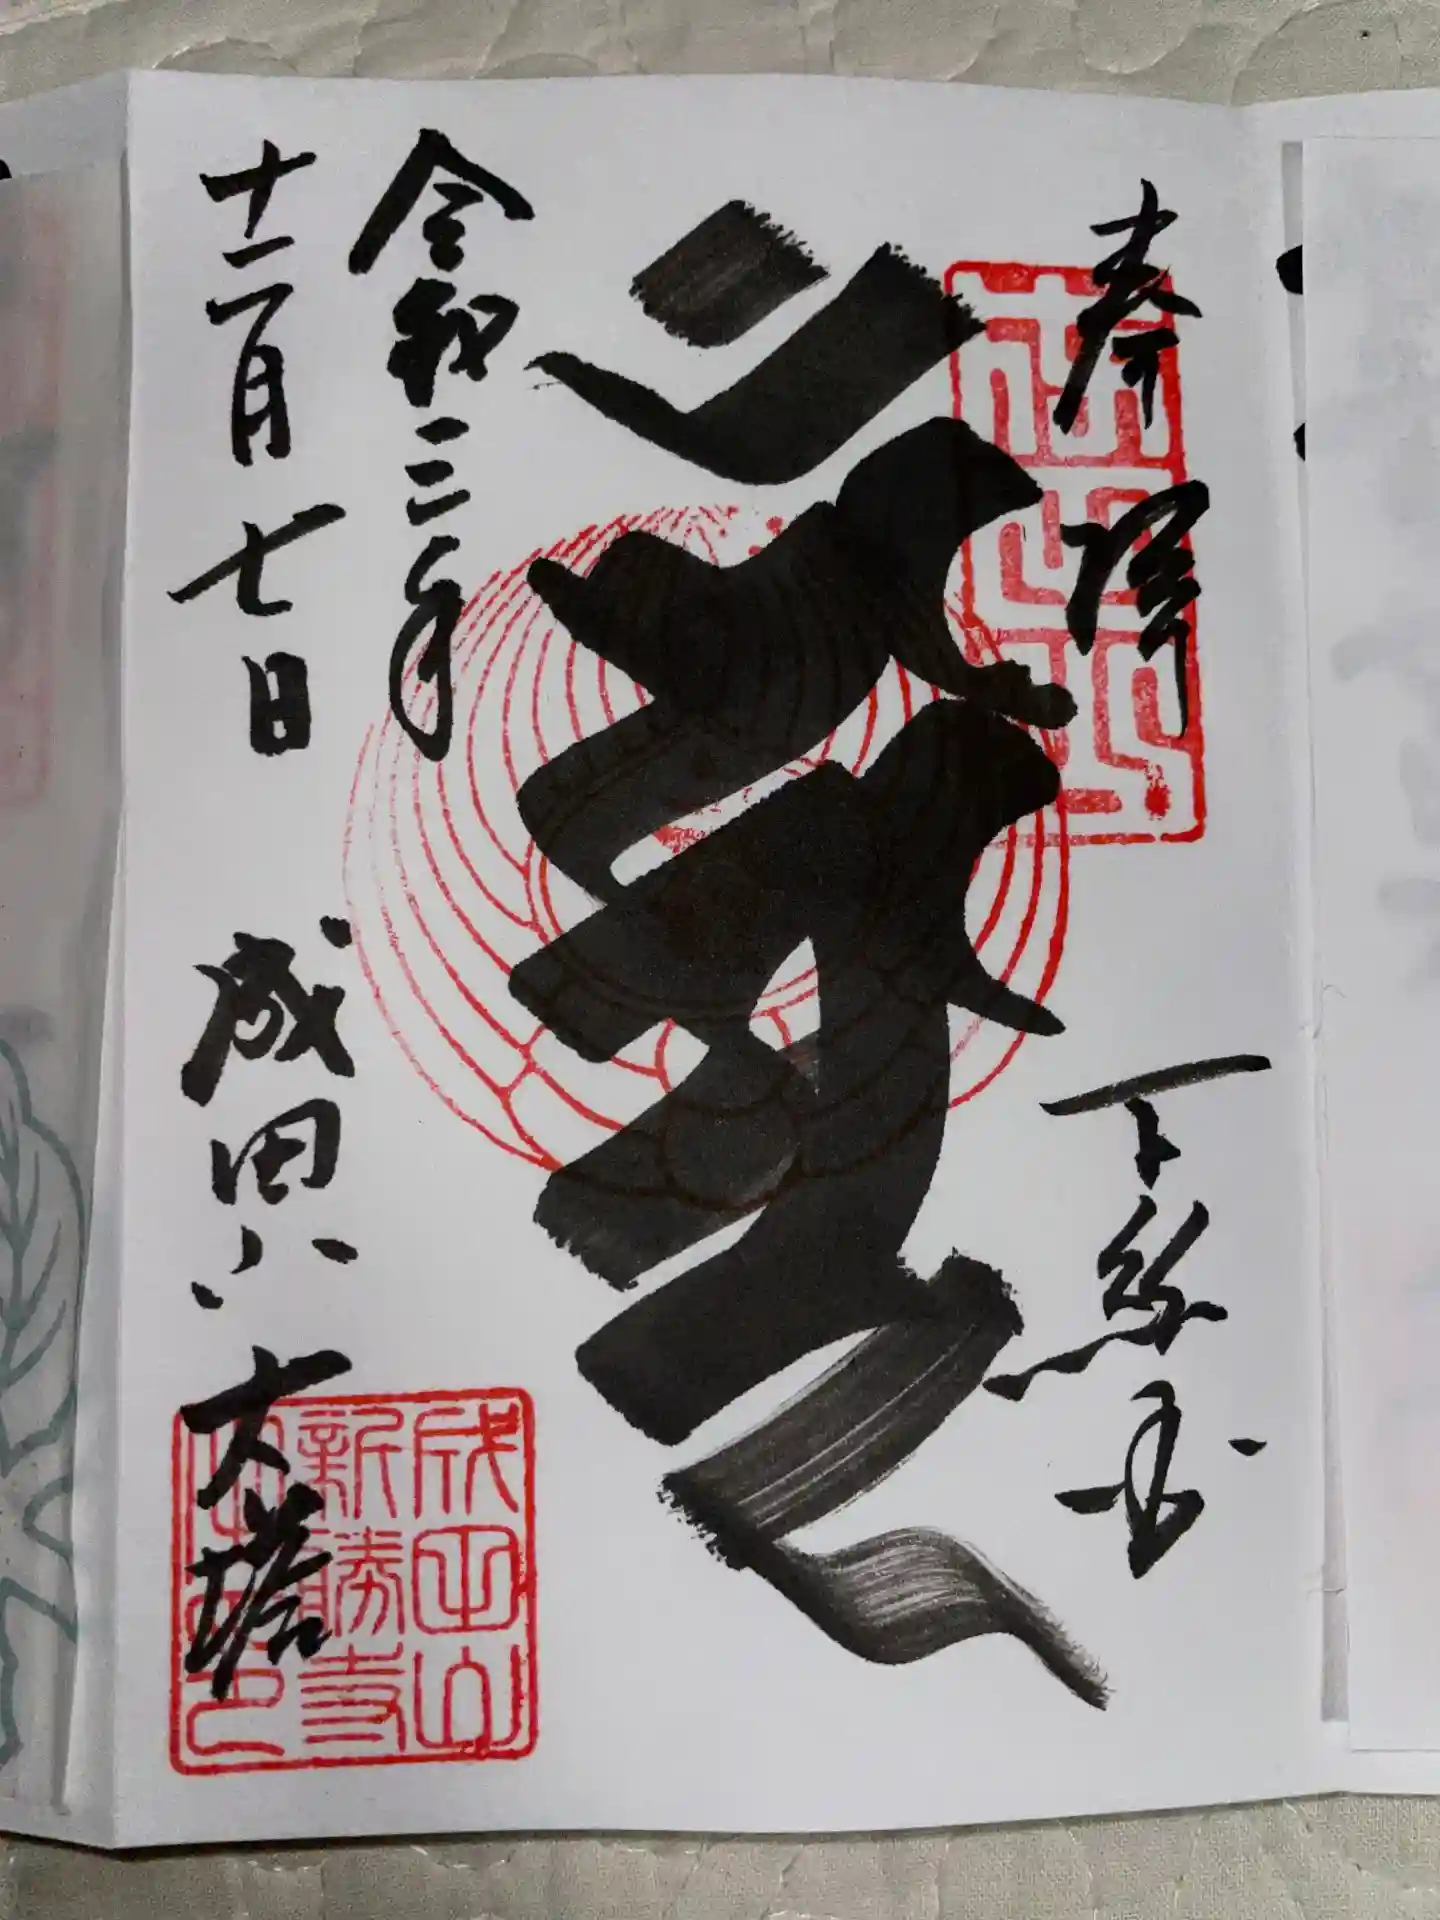 奉拝 下総国
令和二年
十二月七日 成田山 大塔
成田山
新勝寺